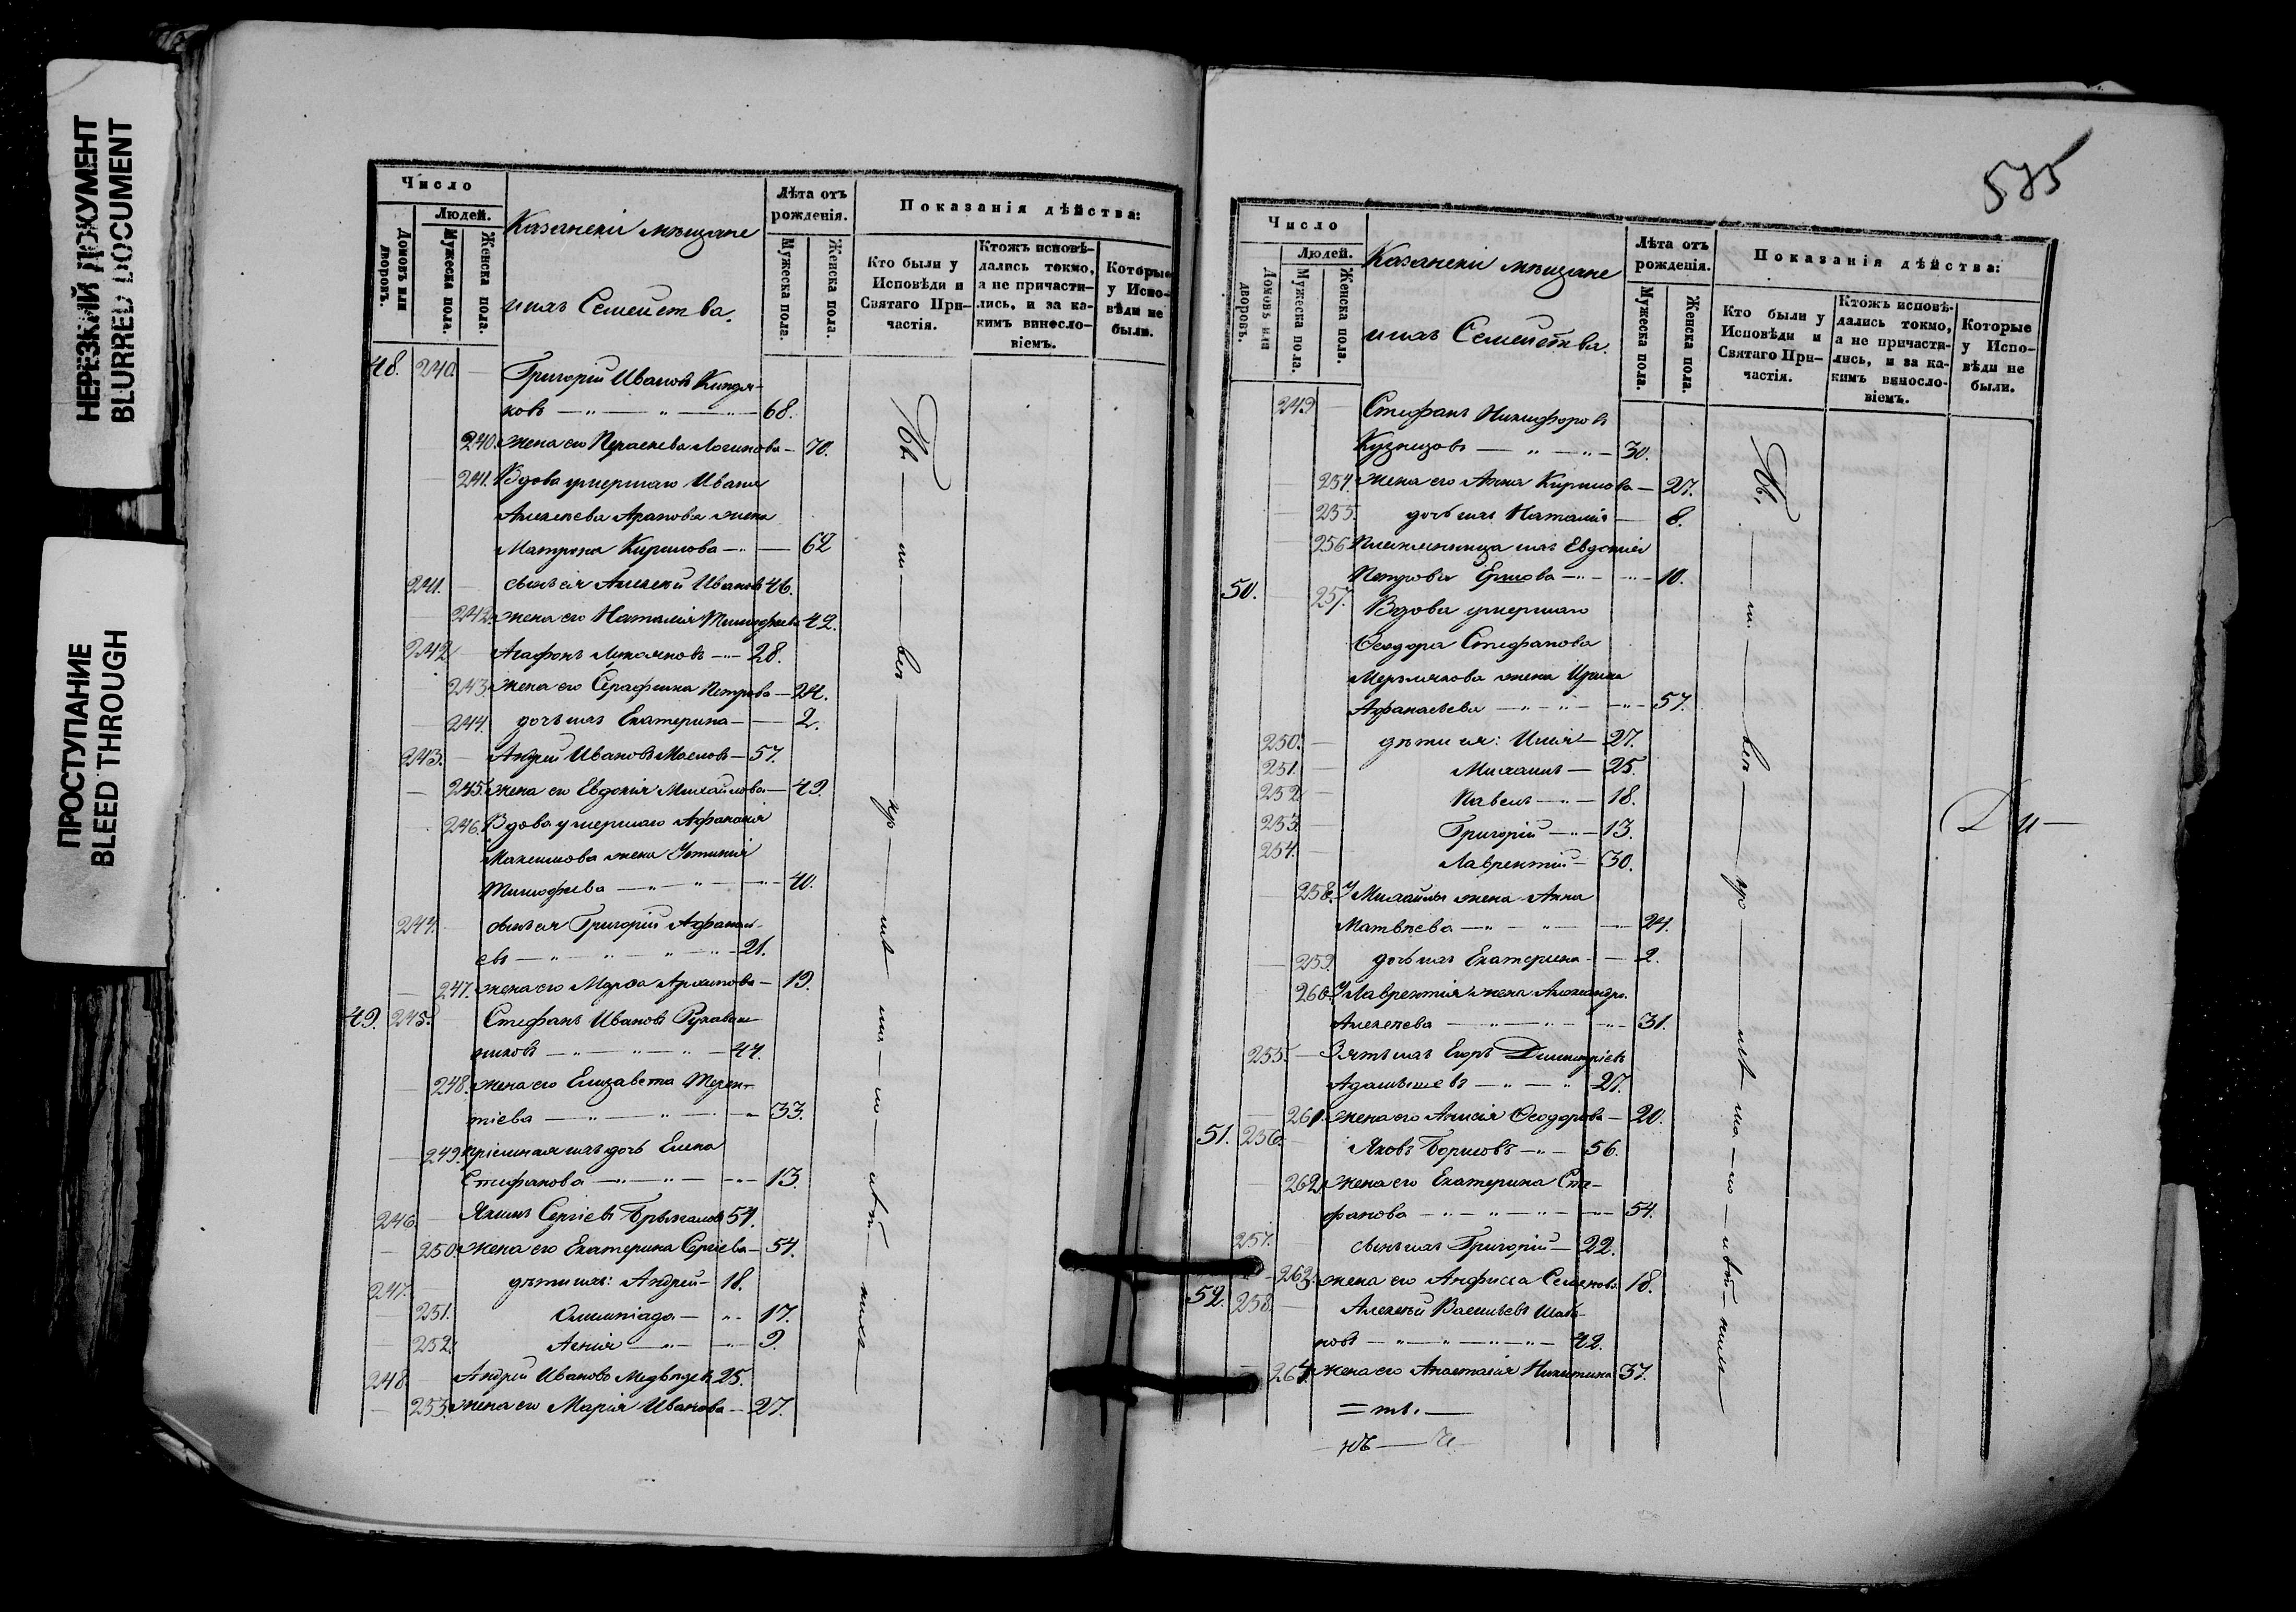 НЕРЕЗКИЙ ДОКУМЕНТ
BLURRED DOCUMENT
ПРОСТУПАНИЕ
BLEED THROUGH
Число
Людей.
Домовъ или дворовъ.
Мужеска пола.
Женска пола.
Казанскіи мѣщане
и ихъ Семейства.
Лѣта отъ рожденія.
Мужеска пола.
Женска пола.
Показанія дѣйства:
Кто были у Исповѣди и Святаго При-частія.
Ктожъ исповѣ-дались токмо, а не причасти-лись, и за ка-кимъ виносло-віемъ.
Которые у Испо-вѣди не были.
48. 240. Григорій Ивановъ Киндя-
ковъ 68.
240. жена его Параскева Логинова 70.
241. Вдова умершаго Ивана
Алексѣева Арапова жена
Матрона Кирилова 62
241. сынъ ея Алексѣй Ивановъ 46.
242. жена его Наталія Тимофѣева 42.
242 Агафонъ Лукояновъ 28.
243. жена его Серафима Петрова 24.
244. дочь ихъ Екатерина 2.
243. Андрей Ивановъ Масловъ 57.
245. жена его Евдокія Михайлова 49.
246. Вдова умершаго Афанасія
Максимова жена Устинія
Тимофѣева 40.
244. сынъ ея Григорій Афанась-
евъ 21.
247. жена его Марѳа Архипова 19.
49. 245. Стефанъ Ивановъ Рукавиш-
никовъ 44.
248. жена его Елизавета Терен-
тіева 33.
249. пріемная ихъ дочь Елена
Стефанова 13.
246. Якимъ Сергіевъ 57.
250. жена его Екатерина Сергіева 54.
247. дѣти ихъ: Андрей 18.
251. Олимпіада 17.
252. Агнія 9.
248 Андрей Ивановъ Медвѣдевъ 25.
253. жена его Марія Иванова 27.
575
Число
Людей.
Домовъ или дворовъ.
Мужеска пола.
Женска пола.
Казанскіи мѣщане
и ихъ Семейства.
Лѣта отъ рожденія.
Мужеска пола.
Женска пола.
Показанія дѣйства:
Кто были у Исповѣди и Святаго При-частія.
Ктожъ исповѣ-дались токмо, а не причасти-лись, и за ка-кимъ виносло-віемъ.
Которые у Испо-вѣди не были.
249 Стефанъ Никифоровъ
Кузнецовъ 30.
254. жена его Анна Кирилова 27.
255. дочь ихъ Наталія 8.
256 Племянница ихъ Евдокія
Петрова Ершова 10.
50. 257. Вдова умершаго
Ѳеодора Стефанова
Мерзлякова жена Ирина
Афанасьева 57.
250. дѣти ея: Илія 27.
251. Михаилъ 25.
252 Павелъ 18.
253. Григорій 13.
254. Лаврентій 30.
258. У Михаила жена Анна
Матвѣева 24.
259. дочь ихъ Екатерина 2.
260. У Лаврентія жена Александра
Алексѣева 31.
255. Зять ихъ Егоръ Димитріевъ
27.
261. жена его Анисія Ѳеодорова 20.
51. 256. Яковъ Борисовъ 56.
262. жена его Екатерина Сте-
фанова 54.
257. сынъ ихъ Григорій 22.
263. жена его Анфиса Семенова 18.
52. 258. Алексѣй Васильевъ Шаба-
новъ 42.
264. жена его Анастасія Никитина 37.